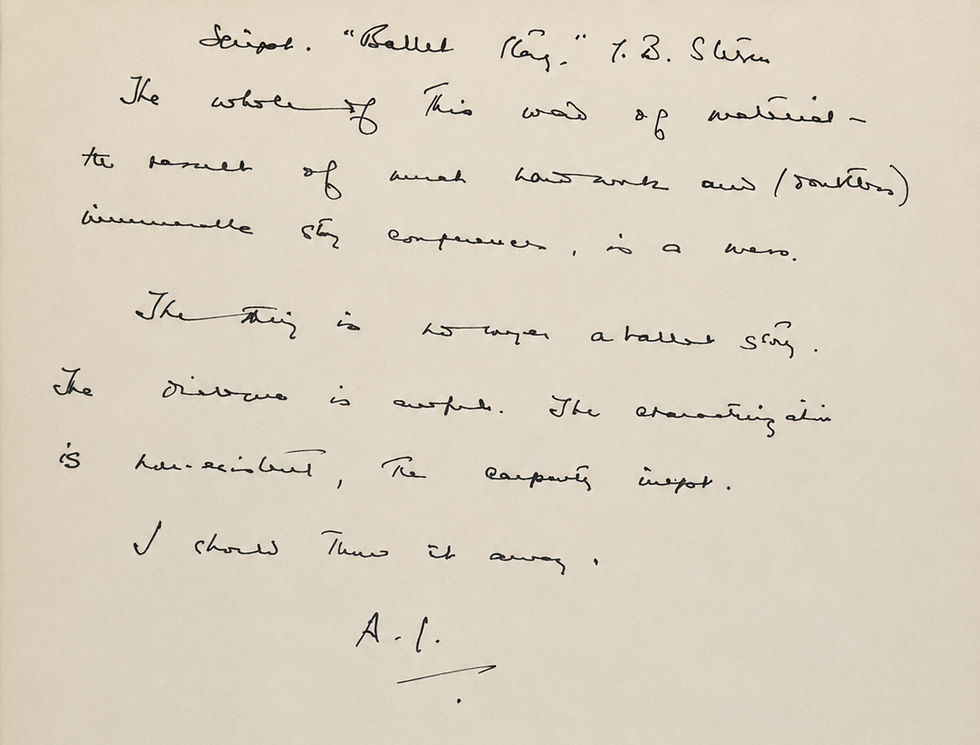 Script. "Ballet Story." G. B. Stern
The whole of this wad of material -
the result of much hard work and (doubtless)
innumerable story conferences, is a mess.
The thing is no longer a ballet story.
The dialogue is awful. The characterization
is non-existent, the carpentry inept.
I should throw it away.
A. J.